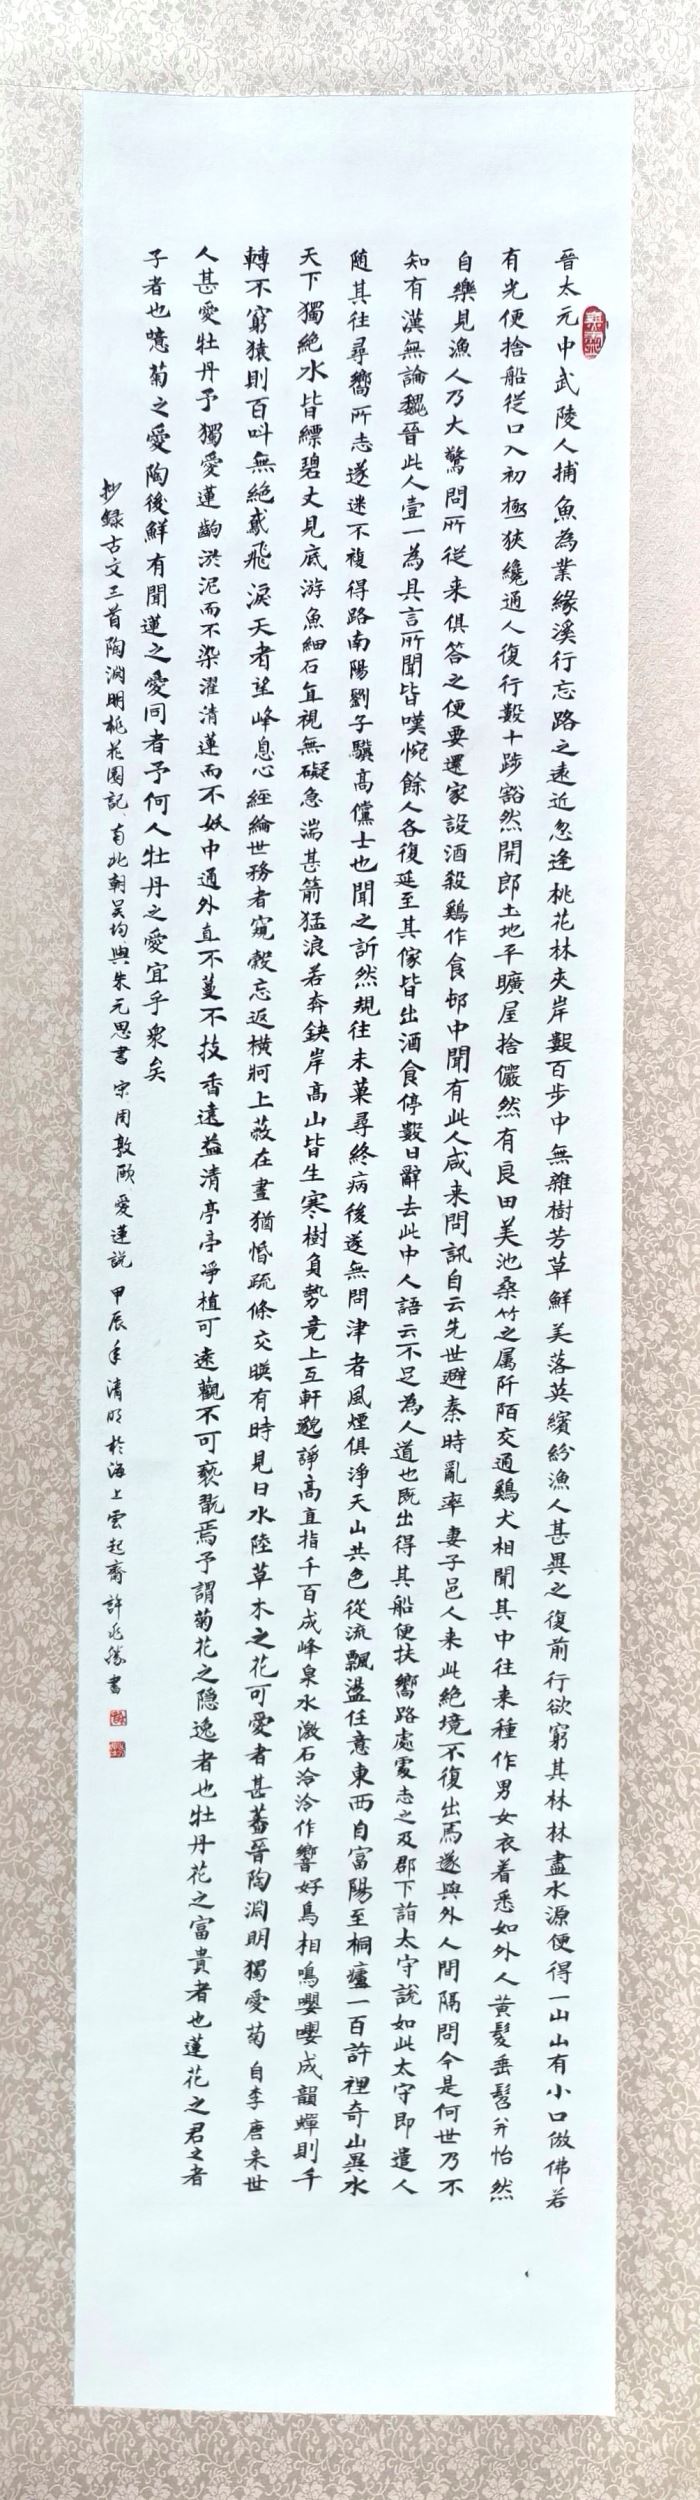 晉太元中武陵人捕魚為業緣溪行忘路之遠近忽逢桃花林夾岸數百步中無雜樹芳草鮮美落英繽紛漁人甚異之復前行欲窮其林林盡水源便得一山山有小口倣佛若
有光便捨船從口入初極狹纔通人復行數十跡豁然開郎土地平曠屋捨儼然有良田美池桑竹之属阡陌交通鷄犬相聞其中往来種作男女衣着悉如外人黄髮垂髫并怡然
自樂見漁人乃大驚問所從来俱答之便要還家設酒殺鷄作食邨中聞有此人咸来問訊自云先世避秦時亂率妻子邑人来此絶境不復出焉遂與外人間隔問今是何世乃不
知有漢無論魏晉此人壹一為具言所聞皆嘆惋餘人各復延至其傢皆出酒食停數日辭去此中人語云不足為人道也既出得其船便扶嚮路處處志之及郡下詣太守說如此太守即遣人
随其往尋嚮所志遂迷不複得路南陽劉子驥高儻士也聞之訢然規往未菓尋終病後遂無問津者風煙俱淨天山共色從流飄盪任意東西自富陽至桐廬一百許裡奇山異水
天下獨絶水皆縹碧丈見底游魚細石直視無礙急湍甚箭猛浪若奔鈌岸高山皆生寒樹負勢竞上互軒邈諍高直指千百成峰泉水激石泠泠作響好鳥相鳴嚶嚶成韻蟬則千
轉不窮猿則百叫無絶鳶飛淚天者望峰息心經綸世務者窺穀忘返横牁上蔽在晝猶惛疏條交暎有時見日水陸草木之花可愛者甚蕃晉陶淵明獨愛菊自李唐来世
人甚愛牡丹予獨愛蓮齣淤泥而不染濯清蓮而不妖中通外直不蔓不技香遠益清亭亭淨植可遠觀不可褻翫焉予謂菊花之隐逸者也牡丹花之富貴者也蓮花之君之者
子者也噫菊之愛陶後鮮有聞蓮之愛同者予何人牡丹之愛宜乎衆矣
抄録古文三首陶淵明桃花園記南北朝吴均與朱元思書宋周敦頤愛蓮說甲辰年清明於海上雲起齋許兆勝書